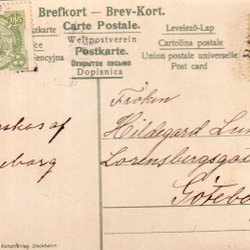 Brefkort — Brev-Kort.
Carte Postale.
Weltpostverein
Postkarte.
Открытое письмо
Dopisnica
Levelező-Lap
Cartolina postale
Union postale universelle
Post card
Fröken
Hildegard
Lorensbergsgat
Göteb
af
eborg
Kunstförlag Stockholm